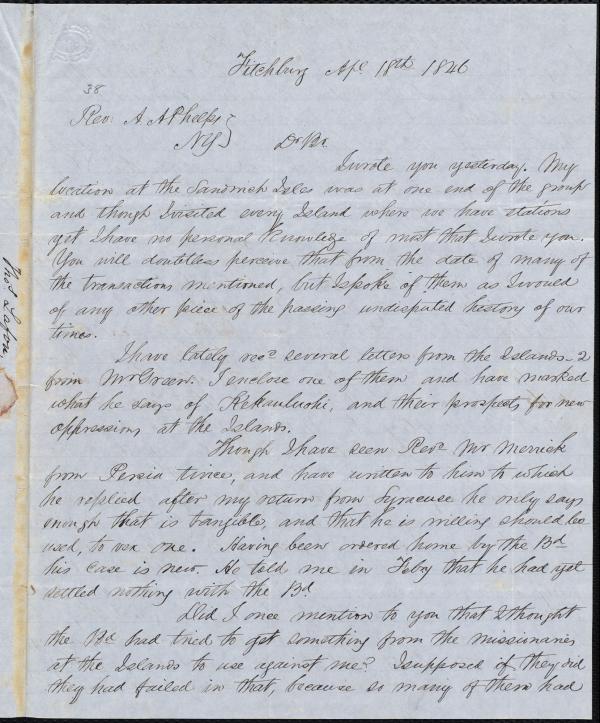 Fitchburg Apl 18th 1846
38
Rev: A A Phelps }
NY } Dr Br.
I wrote you yesterday. My
location at the Sandwich Isles was at one end of the group
and though I visited every Island where we have stations
yet I have no personal knowledge of most that I wrote you.
You will doubtless perceive that from the date of many of
the transactions mentioned, but I spoke of them as I would
of any other piece of the passing undisputed history of our
times.
I have lately recd several letters from the Islands - 2
from Mr Green. I enclose one of them and have marked
what he says of Kekauluohi, and their prospects for new
oppressions at the Islands.
Though I have seen Revd Mr Merrick
from Persia twice, and have written to him to which
he replied after my return from Syracuse he only says
enough that is tangible, and that he is willing should be
used, to vex one. Having been ordered home by the Bd
his case is new. He told me in Feby that he had yet
settled nothing with the Bd
Did I once mention to you that I thought
the Bd had tried to get something from the missionaries
at the Islands to use against me? I supposed if they did
they had failed in that, because so many of them had
Thos Lafon,